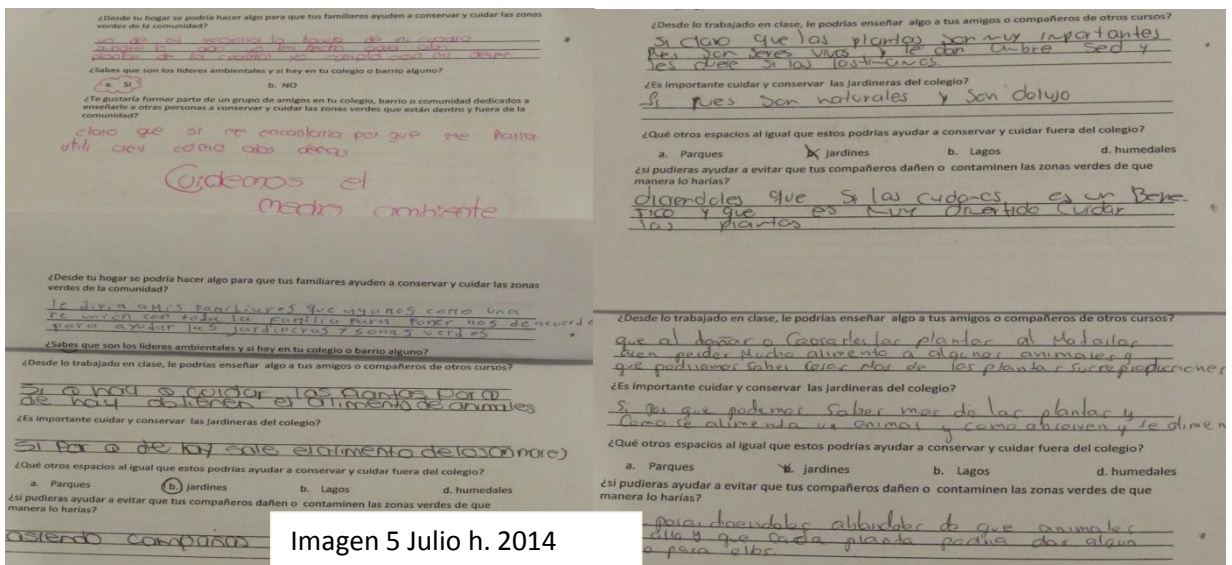 ¿Desde tu hogar se podría hacer algo para que tus familiares ayuden a conservar y cuidar las zonas
verdes de la comunidad?
yo de mi recojeria la basura de mi cuadra
plantas de la cuadra yo cumplo con mi dever
¿Sabes que son los líderes ambientales y si hay en tu colegio o barrio alguno?
a. SI b. NO
¿Te gustaría formar parte de un grupo de amigos en tu colegio, barrio o comunidad dedicados a
enseñarle a otras personas a conservar y cuidar las zonas verdes que están dentro y fuera de la
comunidad?
claro que si me encantaria por que me haria
util creo como alos demas
Cuidemos el
medio ambiente
¿Desde tu hogar se podría hacer algo para que tus familiares ayuden a conservar y cuidar las zonas
verdes de la comunidad?
le diria a mis familiares que agamos como una
re unión con toda la familia para poner nos de acuerdo
para ayudar las jardineras y sonas verdes
¿Sabes que son los líderes ambientales y si hay en tu colegio o barrio alguno?
¿Desde lo trabajado en clase, le podrías enseñar algo a tus amigos o compañeros de otros cursos?
Si a cuidar las plantas por q
de hay obtienen el alimento de animales
¿Es importante cuidar y conservar las jardineras del colegio?
Si por q de hay sale el alimento de los animales
¿Qué otros espacios al igual que estos podrías ayudar a conservar y cuidar fuera del colegio?
a. Parques b. jardines b. Lagos d. humedales
¿si pudieras ayudar a evitar que tus compañeros dañen o contaminen las zonas verdes de que
manera lo harías?
asiendo campañas
Imagen 5 Julio h. 2014
¿Desde lo trabajado en clase, le podrías enseñar algo a tus amigos o compañeros de otros cursos?
Si claro que las plantas son muy importantes
pues son seres vivos y le dan ambre sed y
les duele si las lastimamos
¿Es importante cuidar y conservar las jardineras del colegio?
Si pues son naturales y son delujo
¿Qué otros espacios al igual que estos podrías ayudar a conservar y cuidar fuera del colegio?
a. Parques jardines b. Lagos d. humedales
¿si pudieras ayudar a evitar que tus compañeros dañen o contaminen las zonas verdes de que
manera lo harías?
diciendoles que si las cuidamos es un Bene-
fico y que es muy divertido cuidar
las plantas
¿Desde lo trabajado en clase, le podrías enseñar algo a tus amigos o compañeros de otros cursos?
que al dañar o las plantas al
perder mucho alimento a algunos animales y
que podriamos saber cosas mas de las plantas
¿Es importante cuidar y conservar las jardineras del colegio?
Si por que podemos saber mas de las plantas y
como se alimenta un animal y como absorven y se alimen
¿Qué otros espacios al igual que estos podrías ayudar a conservar y cuidar fuera del colegio?
a. Parques b. jardines b. Lagos d. humedales
¿si pudieras ayudar a evitar que tus compañeros dañen o contaminen las zonas verdes de que
manera lo harías?
de que animales
y que cada planta podria dar algun